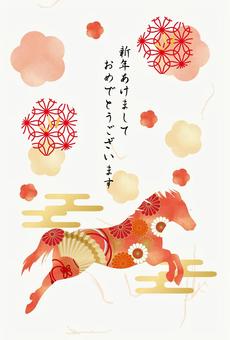 新年あけまして
おめでとうございます